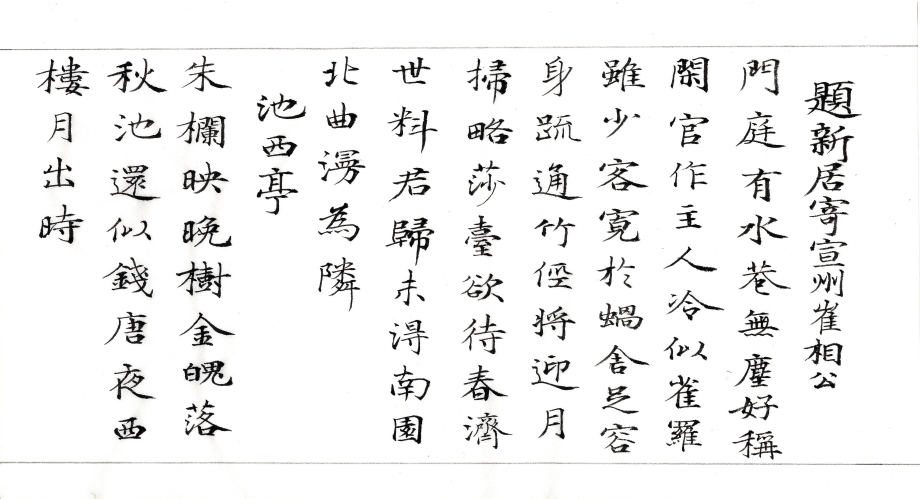 題新居寄宣州崔相公
門庭有水巷無塵好稱
閑官作主人冷似雀羅
雖少客寛於蝸舎足容
身疏通竹徑將迎月
掃略莎臺欲待春濟
世料君歸未得南園
北曲漫為隣
池西亭
朱欄映晚樹金魄落
秋池還似錢唐夜西
樓月出時